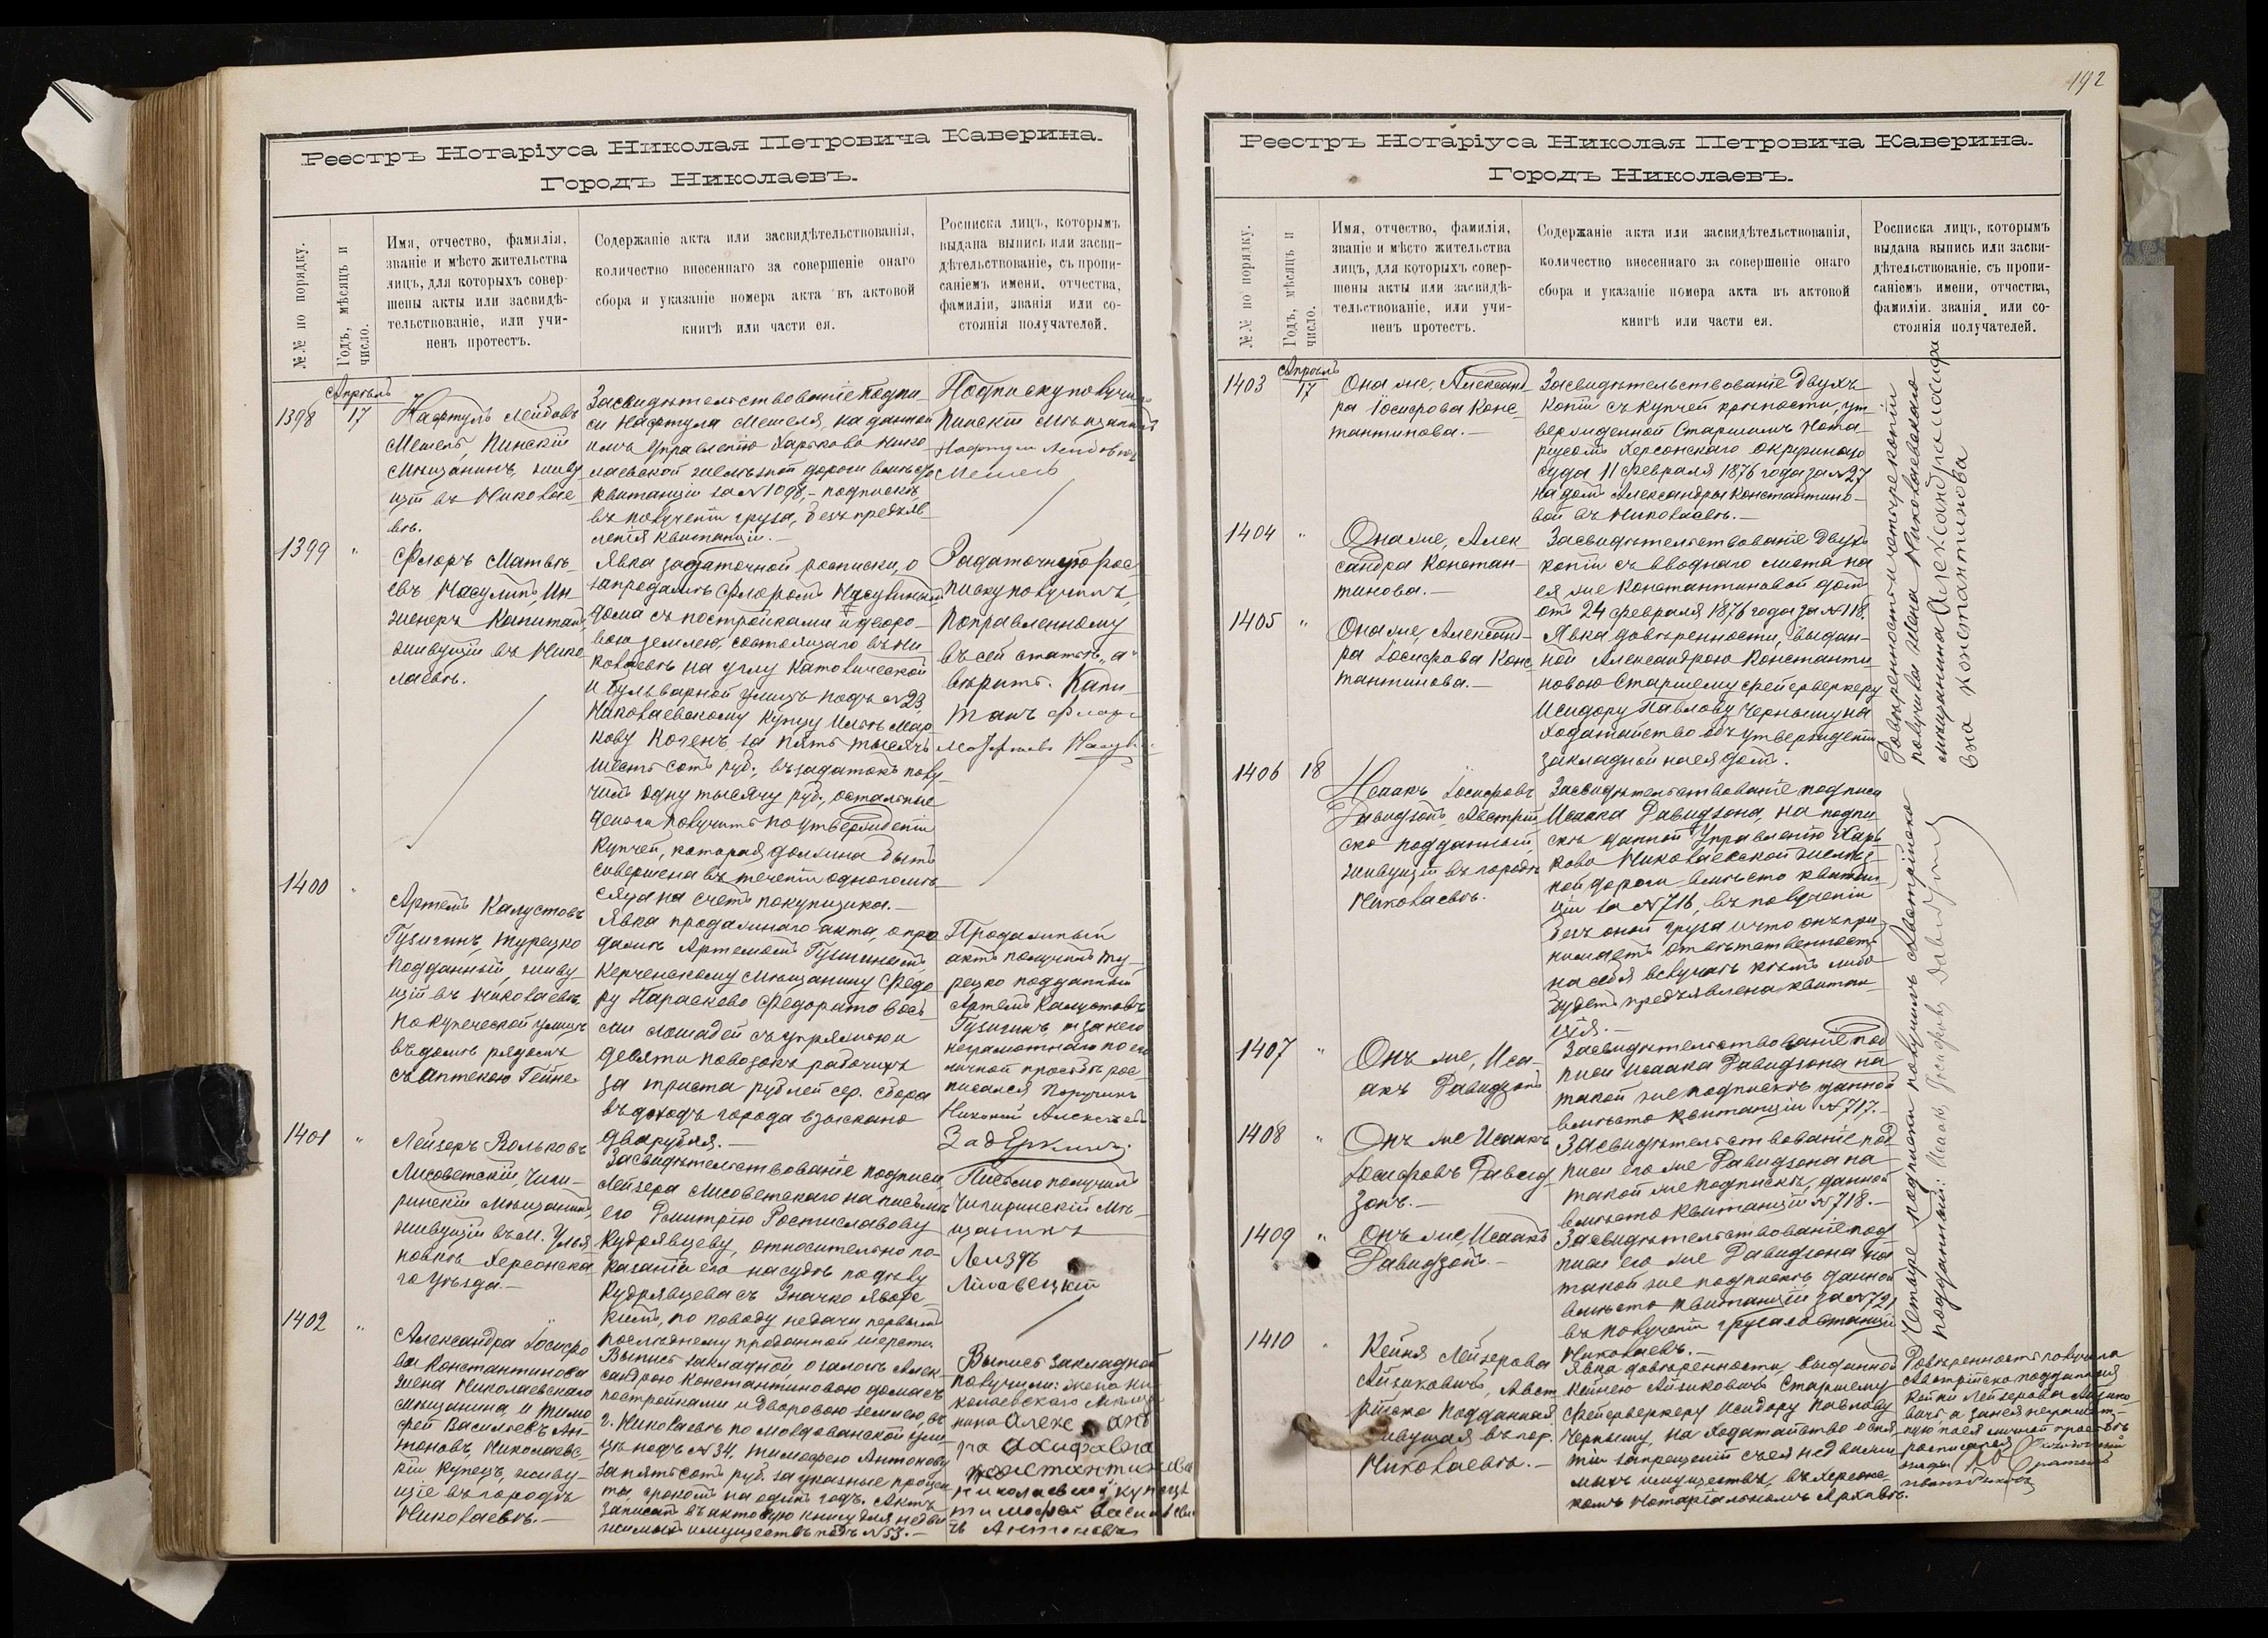 Реестръ Нотаріуса Николая Петровича Каверина.
Городъ Николаевъ.
№№ по порядку.
Годъ, мѣсяцъ и
число.
Имя, отчество, фамилія,
званіе и мѣсто жительства
лицъ, для которыхъ совер-
шены акты или засвидѣ-
тельствованіе, или учи-
ненъ протестъ.
Содержаніе акта или засвидѣтельствованія,
количество внесеннаго за совершеніе онаго
сбора и указаніе номера акта въ актовой
книгѣ или части ея.
Росписка лицъ, которымъ
выдана выпись или засви-
дѣтельствованіе, съ пропи-
саніемъ имени, отчества,
фамиліи, званія или со-
стоянія получателей.
Апрѣль
1398
17
Нафтулъ Лейбовъ
Мешель, Пинскій
мѣщанинъ, живу
щій въ Николае
вѣ.
Засвидѣтельствованіе подпи
си Нафтула Мешеля, на данной
имъ Управленію Харьково Нико
лаевской желѣзной дороги вмѣсто
квитанціи за № 1098,- подпискѣ,
въ полученіи груза, безъ предъяв
ленія квитанціи.-
Подписку получилъ
Пинскій мѣщанинъ
Нафтули Лейбовъ
Мешель
1399
"
Флоръ Матвѣ-
евъ Насулинъ, Ин-
женеръ Капитанъ,
живущій въ Нико
лаевѣ.
Явка задаточной росписки, о
запродажѣ Флоромъ Насулинымъ
дома съ постройками и дворо-
вою землею, состоящаго въ Ни
колаевѣ на углу Католической
и Бульварной улицъ подъ № 23,
Николаевскому купцу Илье Мар
кову Когенъ, за пять тысячъ
шесть сотъ руб., въ задатокъ полу
чилъ одну тысячу руб., остальные
деньги получить по утвержденіи
купчей, которая должна быть
совершена въ теченіи одного мѣ-
сяца на счетъ покупщика.-
Задаточную рос-
писку получилъ,
поправленному
въ сей статьѣ „а"
вѣрить. Капи-
танъ Флоръ
Матвѣевъ Насули
1400
"
Артемъ Калустовъ
Гузигинъ, турецко
подданный, живу-
щій въ Николаевѣ,
по купеческой улицѣ
въ домѣ рядомъ
съ аптекою Гейне
Явка продажнаго акта, о про
дажѣ Артемомъ Гузигинымъ,
Керченскому мѣщанину Федо
ру Параскево Федорато вось
ми лошадей съ упряжью и
девяти повозокъ рабочихъ
за триста рублей сер. Сбора
въ доходъ города взыскано
два рубля.-
Продажный
актъ получилъ ту-
рецко подданный
Артемъ Калустовъ
Гузигинъ, а за него
неграмотнаго по его
личной просьбѣ рос-
писался Поручикъ
Николай Алексѣевъ
1401
"
Лейзеръ Вольковъ
Лисоветскій, Чиги-
ринскій мѣщанинъ,
живущій въ м. Улья
новкѣ Херсонска
го уѣзда.-
Засвидѣтельствованіе подписи
Лейзера Лисоветскаго на письмѣ
его Дмитрію Ростиславову
Кудрявцеву, относительно по-
казанія его на судѣ по дѣлу
Кудрявцева съ Значко Явор-
скимъ, по поводу недачи первымъ
послѣднему проданной шерсти.
Письмо получилъ
Чигиринскій мѣ-
щанинъ
Лейзеръ
Лисавецкій
1402
"
Александра Іосифо
ва Константинова
жена Николаевскаго
мѣщанина, и Тимо
фей Васильевъ Ан-
тоновъ, Николаевс-
кій купецъ, живу-
щіе въ городѣ
Николаевѣ.-
Выпись закладной, о залогѣ Алек-
сандрою Константиновою дома съ
постройками и дворовою землею, въ
г. Николаевѣ по Молдованской ули-
цѣ подъ № 34, Тимофею Антонову
за пять сотъ руб. за указные процен
ты срокомъ на одинъ годъ. Актъ
записанъ въ актовую книгу для недви
жимыхъ имуществъ подъ № 53.-
Выпись закладной
получили: жена Ни-
колаевскаго мѣща
нина Александ
ра Осифовна
Константинова
Николаевскій купецъ
Тимофей Василіеви
чъ Антоновъ
192
Реестръ Нотаріуса Николая Петровича Каверина.
Городъ Николаевъ.
№№ по порядку.
Годъ, мѣсяцъ и
число.
Имя, отчество, фамилія,
званіе и мѣсто жительства
лицъ, для которыхъ совер-
шены акты или засвидѣ-
тельствованіе, или учи-
ненъ протестъ.
Содержаніе акта или засвидѣтельствованія,
количество внесеннаго за совершеніе онаго
сбора и указаніе номера акта въ актовой
книгѣ или части ея.
Росписка лицъ, которымъ
выдана выпись или засви-
дѣтельствованіе, съ пропи-
саніемъ имени, отчества,
фамиліи, званія, или со-
стоянія получателей.
Апрѣль
1403
17
Она же, Александ
ра Іосифова Конс-
тантинова.-
Засвидѣтельствованіе двухъ
копій съ купчей крѣпости, ут
вержденной Старшимъ Нота-
ріусомъ Херсонскаго Окружнаго
суда 11 февраля 1876 года за № 27
на домъ Александры Константино-
вой въ Николаевѣ.-
1404
"
Она же, Алек
сандра Констан-
тинова.-
Засвидѣтельствованіе двухъ
копій съ вводнаго листа на
ея же Константиновой домъ
отъ 24 февраля 1876 года за № 118.
1405
"
Она же, Александ-
ра Іосифова Конс
тантинова.-
Явка довѣренности, выдан-
ной Александрою Константи
новою Старшему фейерверкеру
Исидору Павлову Чернышу на
ходатайство объ утвержденіи
закладной на ея домъ.
Довѣренность и четыре копіи
получила жена Николаевскаго
мѣщанина Александра Иосифа
вна Константинова
1406
18
Исаакъ Іосифовъ
Давидзонъ Австрій
ско подданный,
живущій въ городѣ
Николаевѣ.
Засвидѣтельствованіе подписи
Исаака Давидзона, на подпи
скѣ данной Управленію Харь
ково Николаевской желѣз-
ной дороги вмѣсто квитан
ціи за № 716, въ полученіи
безъ оной груза и что онъ при
нимаетъ отвѣтственность
на себя въ случаѣ кѣмъ либо
будетъ предъявлена квитан-
ція.-
1407
"
Онъ же, Иса-
акъ Давидзонъ
Засвидѣтельствованіе под
писи Исаака Давидзона на
такой же подпискѣ данной
вмѣсто квитанціи № 717.-
1408
"
Онъ же Исаакъ
Іосифовъ Давид
зонъ.-
Засвидѣтельствованіе под
писи его же Давидзона на
такой же подпискѣ, данной
вмѣсто квитанціи № 718.-
1409
"
Онъ же Исаакъ
Давидзонъ.-
Засвидѣтельствованіе под
писи его же Давидзона на
такой же подпискѣ данной
вмѣсто квитанціи за № 721
въ полученіи груза со станціи
Николаевъ.-
Четыре подписки получилъ Австрійско
подданный: Исаакъ Іосифовъ Давидзонъ
1410
"
Кейня Лейзерова
Айзиковичъ, Авст
рійско подданная
живущая въ гор.
Николаевѣ.-
Явка довѣренности, выданной
Кейнею Айзиковичъ Старшему
фейерверкеру Исидору Павлову
Чернышу, на ходатайство о сня
тіи запрещеній съ ея недвижи
мыхъ имуществъ, въ Херсонс-
комъ Нотаріальномъ Архивѣ.
Довѣренность получила
Австрійско подданная
Кейня Лейзерова Айзико
вичъ, а за нея неграмот-
ную по ея личной просьбѣ
росписался